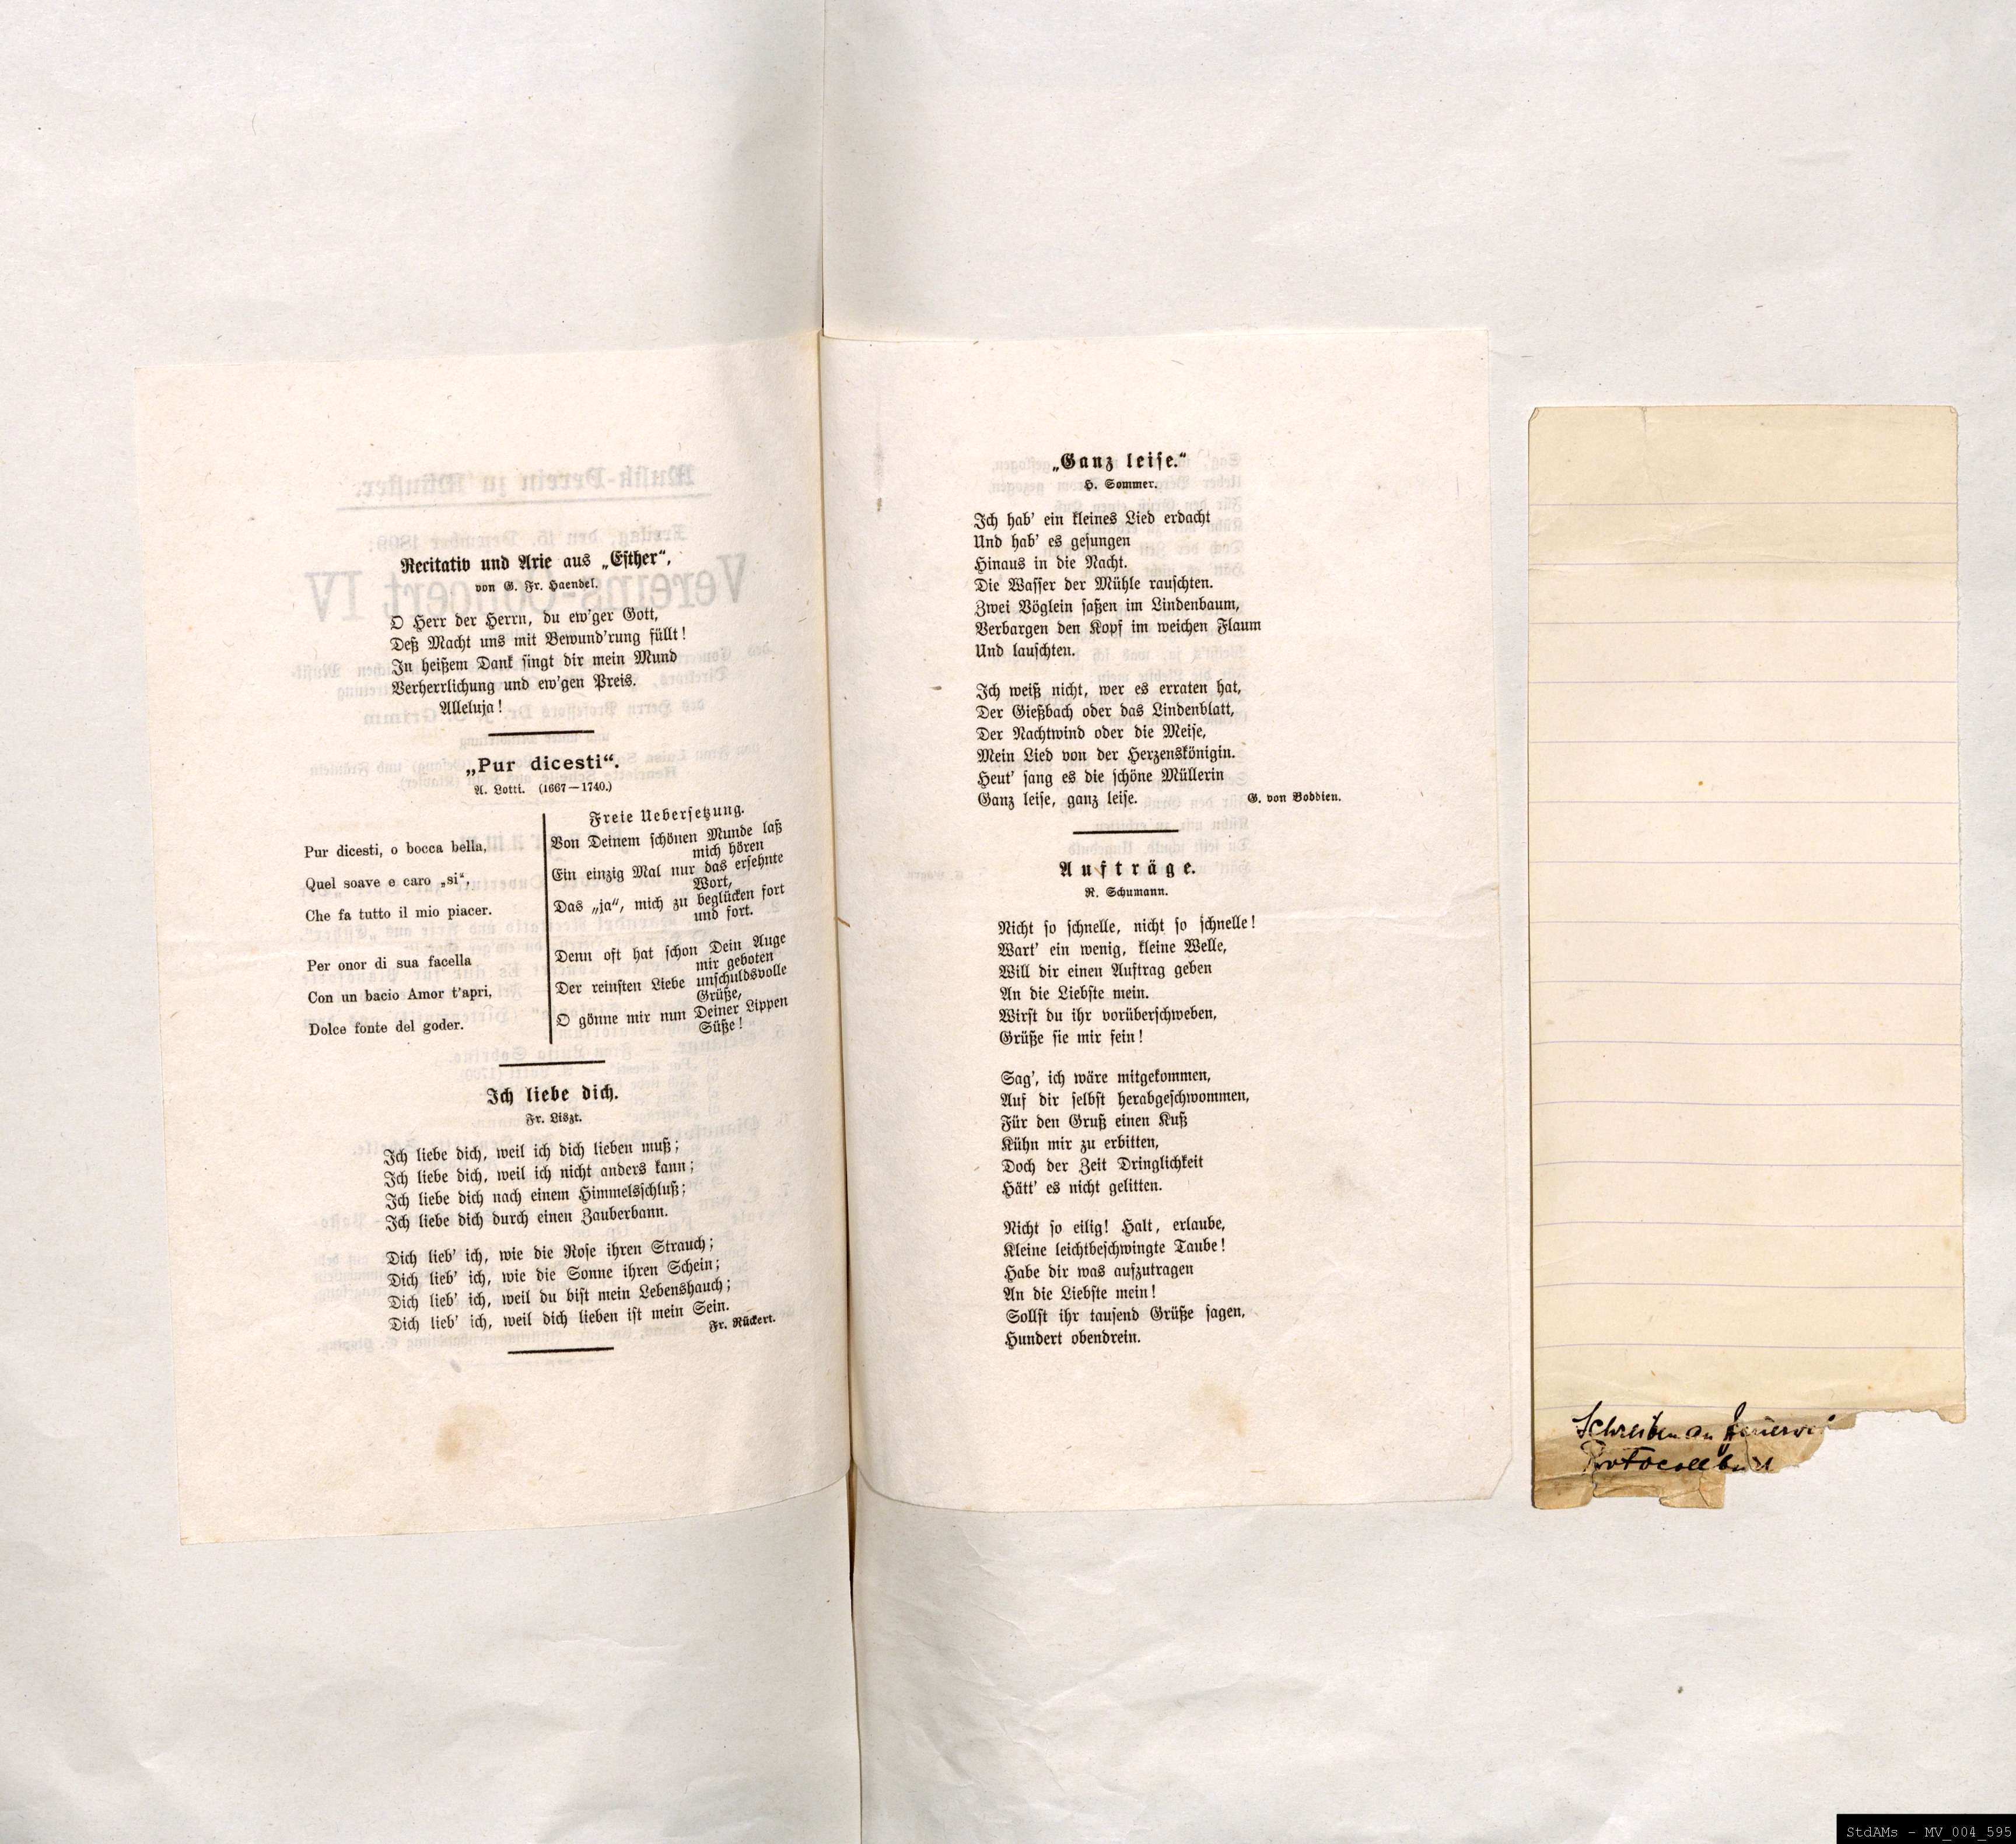 Recitativ und Arie aus „Esther“,
von G. Fr. Haendel.
O Herr der Herrn, du ew'ger Gott,
Deß Macht uns mit Bewund'rung füllt!
In heißem Dank singt dir mein Mund
Verherrlichung und ew'gen Preis.
Alleluja!
„Pur dicesti“.
A. Lotti. (1667—1740.)
Pur dicesti, o bocca bella,
Quel soave e caro „si“,
Che fa tutto il mio piacer.
Per onor di sua facella
Con un bacio Amor t'apri,
Dolce fonte del goder.
Freie Uebersetzung.
Von Deinem schönen Munde laß
mich hören
Ein einzig Mal nur das ersehnte
Wort,
Das „ja“, mich zu beglücken fort
und fort.
Denn oft hat schon Dein Auge
mir geboten
Der reinsten Liebe unschuldsvolle
Grüße,
O gönne mir nun Deiner Lippen
Süße!
Ich liebe dich.
Fr. Liszt.
Ich liebe dich, weil ich dich lieben muß;
Ich liebe dich, weil ich nicht anders kann;
Ich liebe dich nach einem Himmelsschluß;
Ich liebe dich durch einen Zauberbann.
Dich lieb' ich, wie die Rose ihren Strauch;
Dich lieb' ich, wie die Sonne ihren Schein;
Dich lieb' ich, weil du bist mein Lebenshauch;
Dich lieb' ich, weil dich lieben ist mein Sein.
Fr. Rückert.
„Ganz leise.“
H. Sommer.
Ich hab' ein kleines Lied erdacht
Und hab' es gesungen
Hinaus in die Nacht.
Die Wasser der Mühle rauschten.
Zwei Vöglein saßen im Lindenbaum,
Verbargen den Kopf im weichen Flaum
Und lauschten.
Ich weiß nicht, wer es erraten hat,
Der Gießbach oder das Lindenblatt,
Der Nachtwind oder die Meise,
Mein Lied von der Herzenskönigin.
Heut' sang es die schöne Müllerin
Ganz leise, ganz leise.
G. von Boddien.
Aufträge.
R. Schumann.
Nicht so schnelle, nicht so schnelle!
Wart' ein wenig, kleine Welle,
Will dir einen Auftrag geben
An die Liebste mein.
Wirst du ihr vorüberschweben,
Grüße sie mir fein!
Sag', ich wäre mitgekommen,
Auf dir selbst herabgeschwommen,
Für den Gruß einen Kuß
Kühn mir zu erbitten,
Doch der Zeit Dringlichkeit
Hätt' es nicht gelitten.
Nicht so eilig! Halt, erlaube,
Kleine leichtbeschwingte Taube!
Habe dir was aufzutragen
An die Liebste mein!
Sollst ihr tausend Grüße sagen,
Hundert obendrein.
Schreiben an
StdAMs - MV_004_595